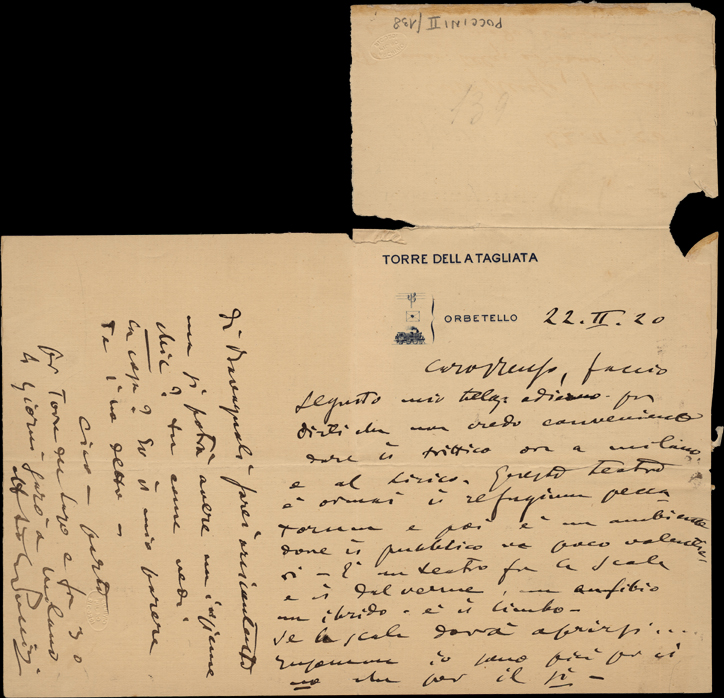 PUCCINI II/138
139
TORRE DELLA TAGLIATA
ORBETELLO
22.II.20
Caro Renzo, faccio
seguito mio teleg: odierno per
dirti che non credo conveniente
dare il trittico ora a milano
e al Lirico. Questo teatro
è ormai il refugium pecca
torum e poi è un ambiente
dove il pubblico va poco volentie
ri – È un teatro fra la Scala
e il dal verme, un anfibio
un ibrido – è il limbo –
Se la scala dovrà aprirsi....
io sono più per il
no che per il sì –
di Bavagnoli
ma si potrà avere un insieme
chic? tu come vedi
la cosa? Io il mio parere
te l'ho detto –
Ciao – parto
per Torre del Lago e fra 30
4 giorni sarò a milano
Puccini